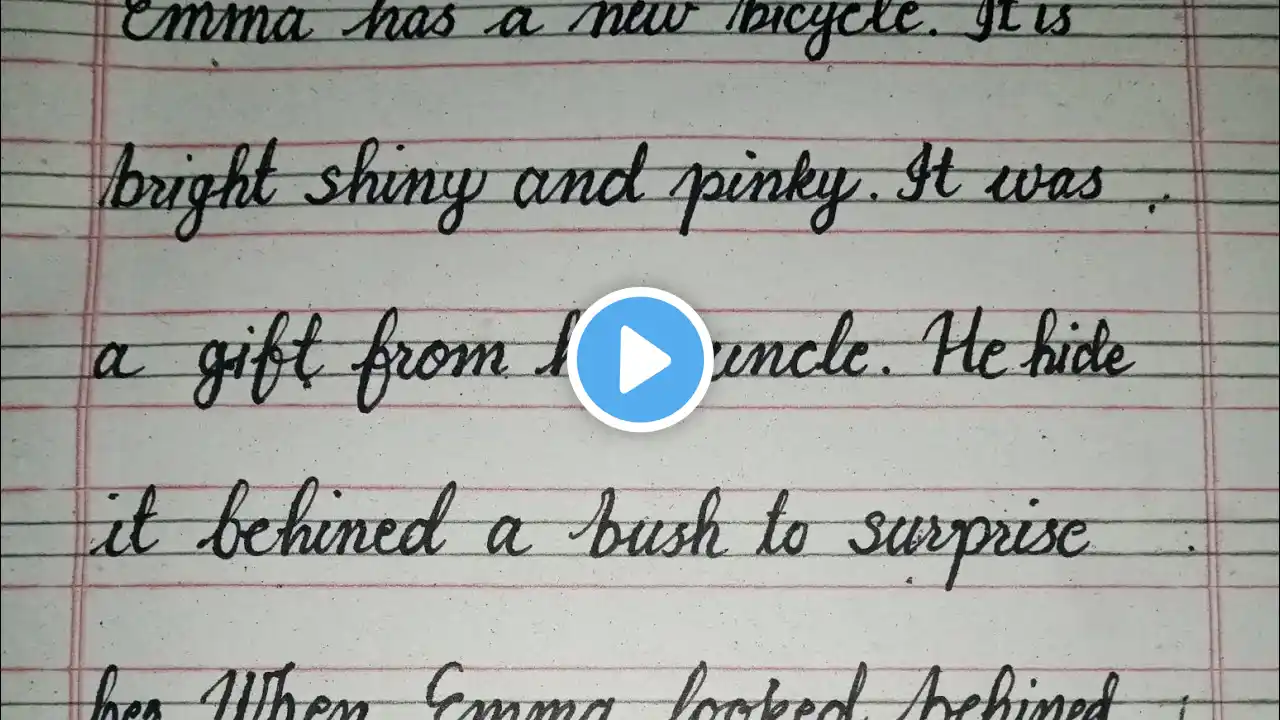 Emma has a new bicycle. It is
bright shiny and pinky. It was
a gift from uncle. He hide
it behined a bush to surprise
her When Emma looked behined